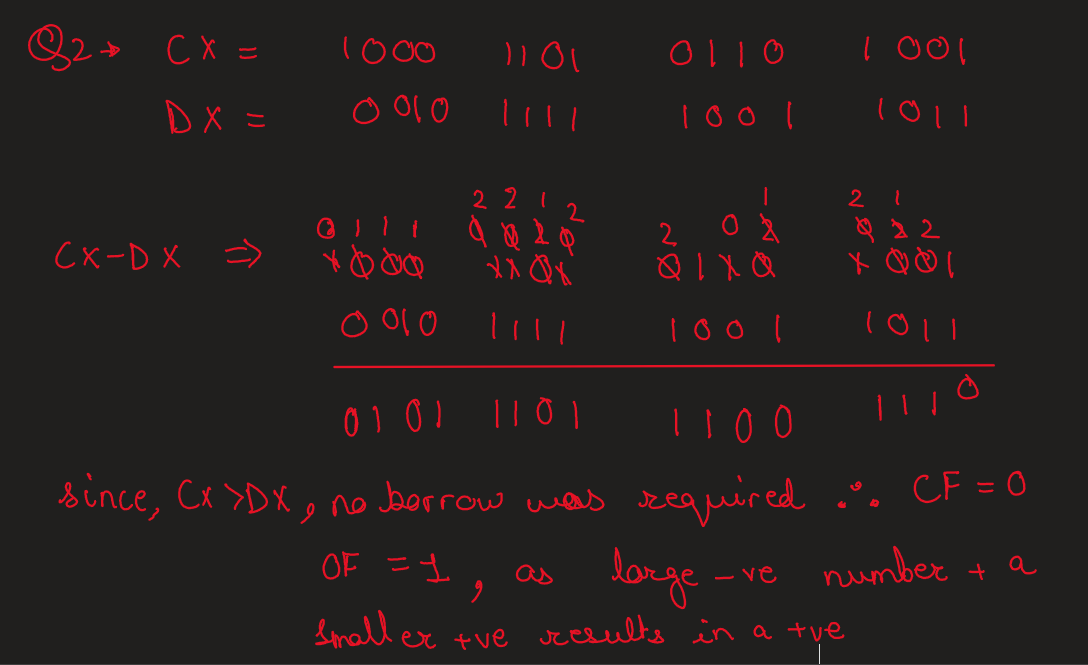 Q2→ CX = 1000 1101 0110 1001
DX = 0010 1111 1001 1011
2 2 1 2 1 2 1
0 1 1 1 0 0 2 0 2 0 2 0 2 2
CX-DX ⇒ 1000 1101 0110 1001
0010 1111 1001 1011
0101 1101 1100 1110
since, CX>DX, no borrow was required ∴ CF = 0
OF = 1, as large -ve number + a
smaller +ve results in a +ve